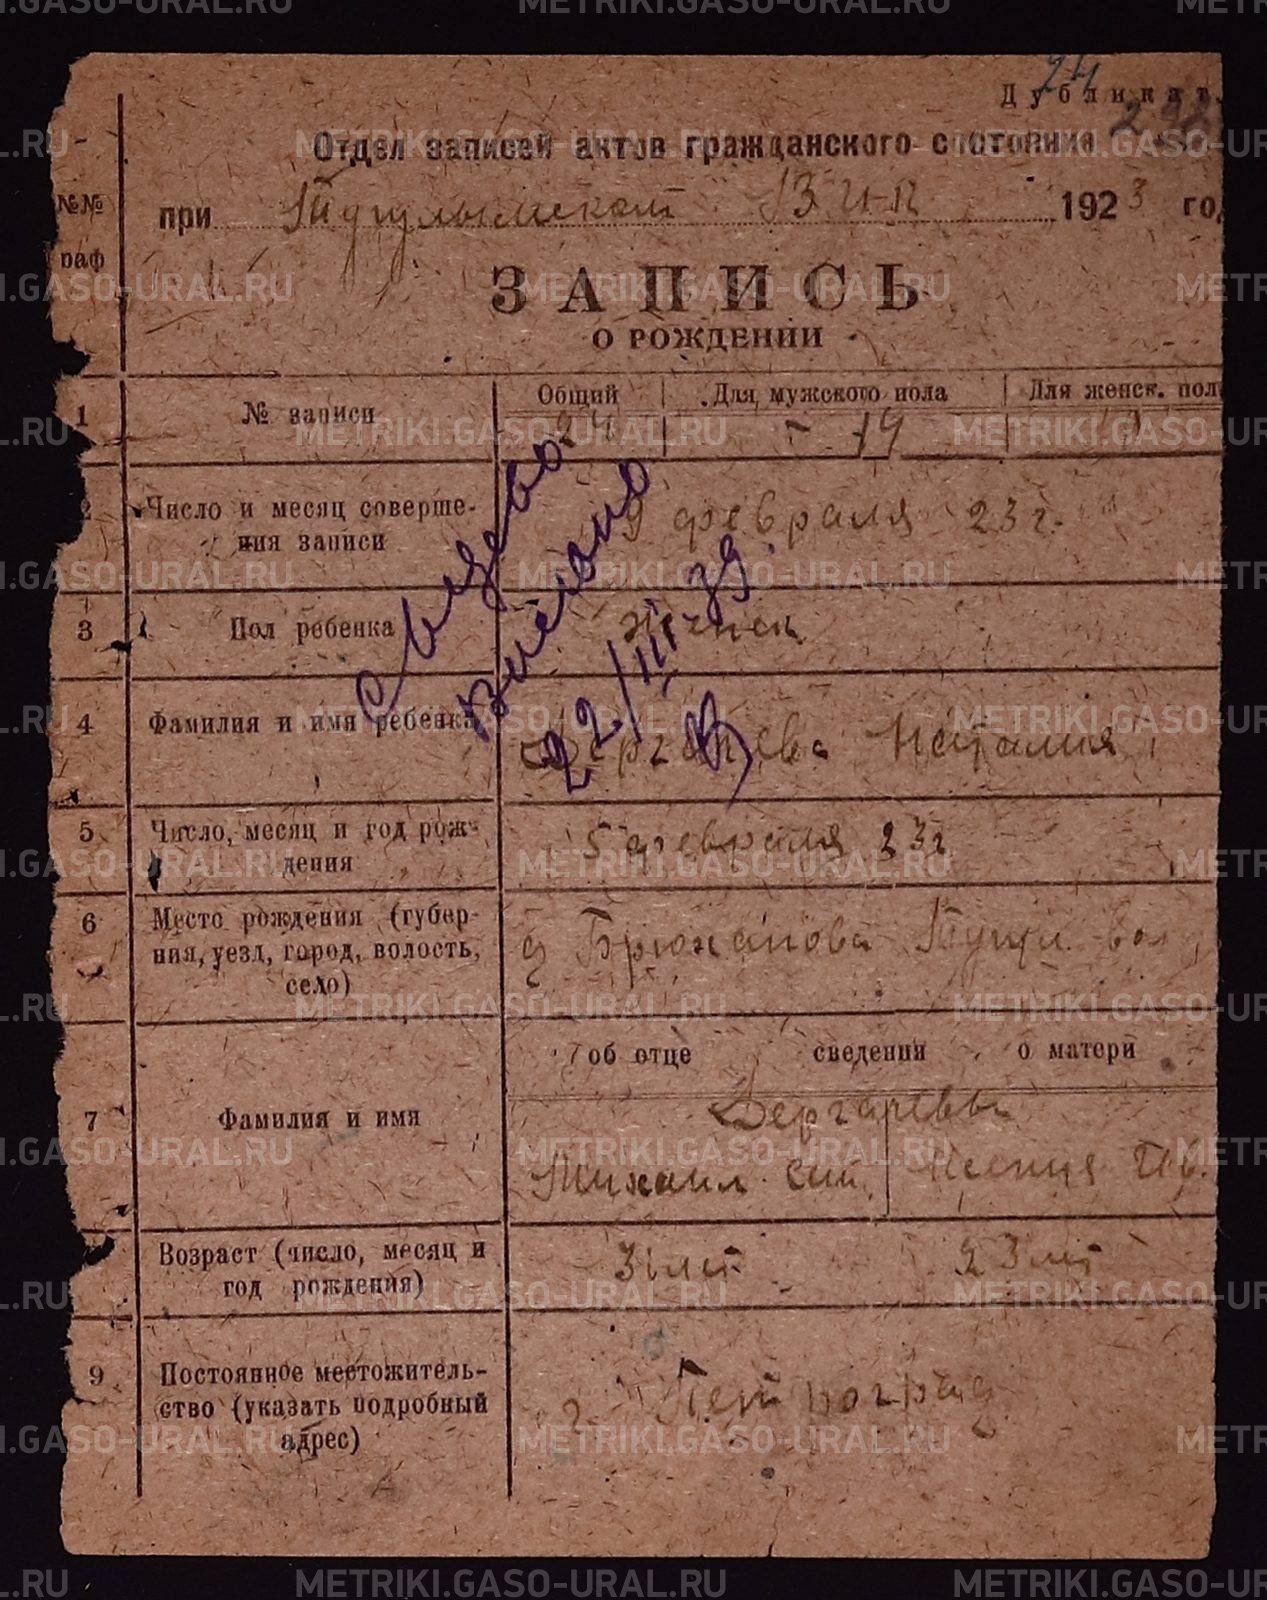 24
Дубликат
Отдел записей актов гражданского состояния
при Тугулымском ВИК 1923 го
№№
раф
ЗАПИСЬ
О РОЖДЕНИИ
1 № записи Общий Для мужского пола Для женск. пол
24 - 14
2 Число и месяц соверше-
ния записи
9 февраля 23 г.
3 Пол ребенка женск
4 Фамилия и имя ребенка Дергачева Наталия
5 Число, месяц и год рож-
дения
5 февраля 23 г
6 Место рождения (губер-
ния, уезд, город, волость,
село)
д Брюханова Тугул. вол
об отце сведения о матери
7 Фамилия и имя
Дергачевы
Михаил Ксения Ив.
Возраст (число, месяц и
год рождения)
31 лет 23 лет
9 Постоянное местожитель-
ство (указать подробный
адрес)
г. Петроград
22/III-39.
METRIKI.GASO-URAL.RU